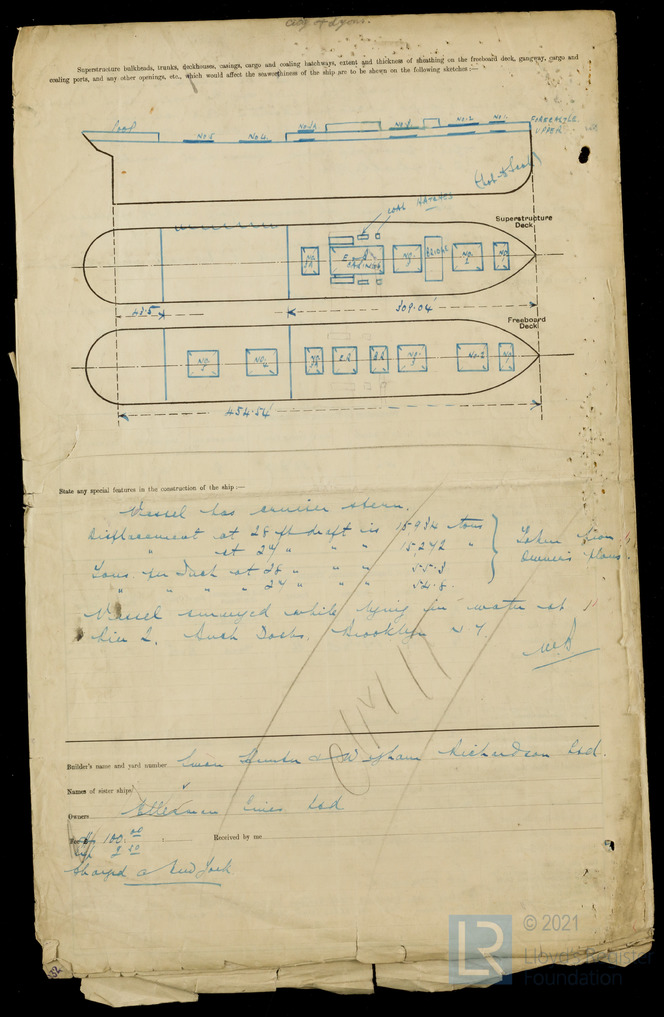 City of Lyons.
Superstructure bulkheads, trunks, deckhouses, casings, cargo and coaling hatchways, extent and thickness of sheathing on the freeboard deck, gangway, cargo and
coaling ports, and any other openings, etc., which would affect the seaworthiness of the ship are to be shown on the following sketches:—
Poop
No 5
No 4
No 3A
No 3
No 2
No 1
FORECASTLE
UPPER
(Not to Scale)
COAL HATCHES
Superstructure
Deck
No 3A
E & B
CASINGS
No 3
BRIDGE
No 2
No 1
43.5
309.04
Freeboard
Deck
No 5
No 4
No 3A
E.R
B.R
No 3
No 2
No 1
454.54
State any special features in the construction of the ship:—
Vessel has cruiser stern.
Displacement at 28 ft draft is 15934 tons
" at 27 " " " 15272 "
Taken from
owners plans.
Tons per Inch at 28 " " " 55.3
" " " " 27 " " " 54.8
Vessel surveyed while lying in water at
Pier 2. Bush Docks. Brooklyn N Y.
Builder's name and yard number Swan Hunter & Wigham Richardson Ltd.
Names of sister ships
Owners Ellerman Lines Ltd
Fee 100.00
Received by me
Charged a New York
LR
© 2021
Lloyd's Register
Foundation